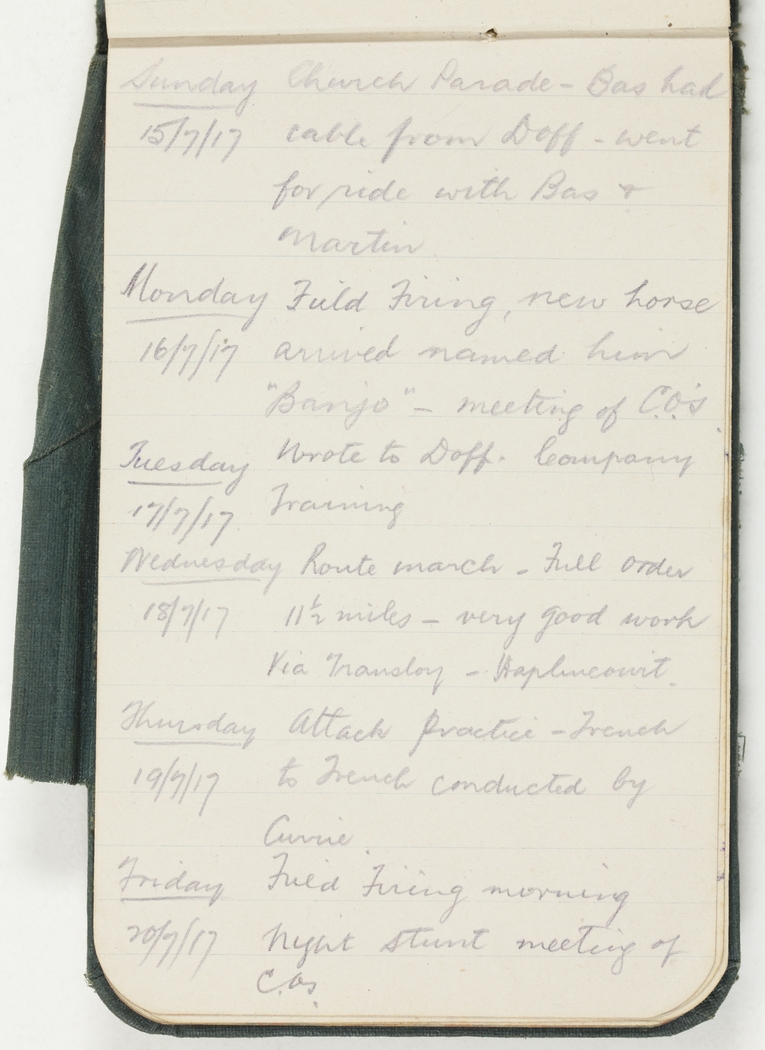 Sunday Church Parade - Bas had
15/7/17 cable from Doff - went
for ride with Bas &
Martin
Monday Field Firing, new horse
16/7/17 arrived named him
"Banjo" - meeting of C.O's.
Tuesday Wrote to Doff. Company
17/7/17 Training
Wednesday Route march - Full order
18/7/17 11½ miles - very good work
Via Transloy - Haplincourt.
Thursday Attack Practice - Trench
19/7/17 to Trench conducted by
Currie.
Friday Field Firing morning
20/7/17 Night stunt meeting of
C.Os.